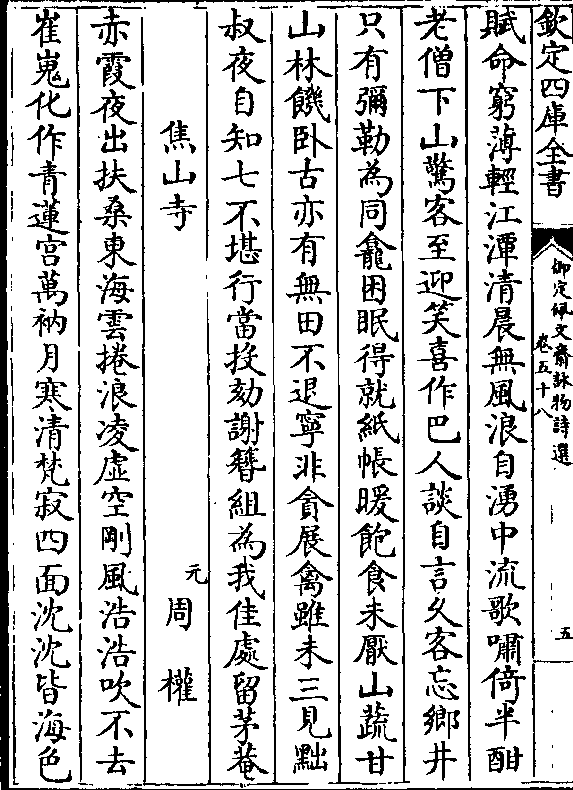 欽定四庫全書
御定佩文齋詠物詩選
卷五十八
五
賦命窮薄輕江潭清晨無風浪自湧中流歌嘯倚半酣
老僧下山驚客至迎笑喜作巴人談自言久客忘鄉井
只有彌勒為同龕困眠得就紙帳暖飽食未厭山蔬甘
山林饑卧古亦有無田不退寧非貪展禽雖未三見黜
叔夜自知七不堪行當投劾謝簪組為我佳處留茅菴
焦山寺
元周權
赤霞夜出扶桑東海雲捲浪凌虛空剛風浩浩吹不去
崔嵬化作青蓮宫萬衲月寒清梵寂四面沈沈皆海色